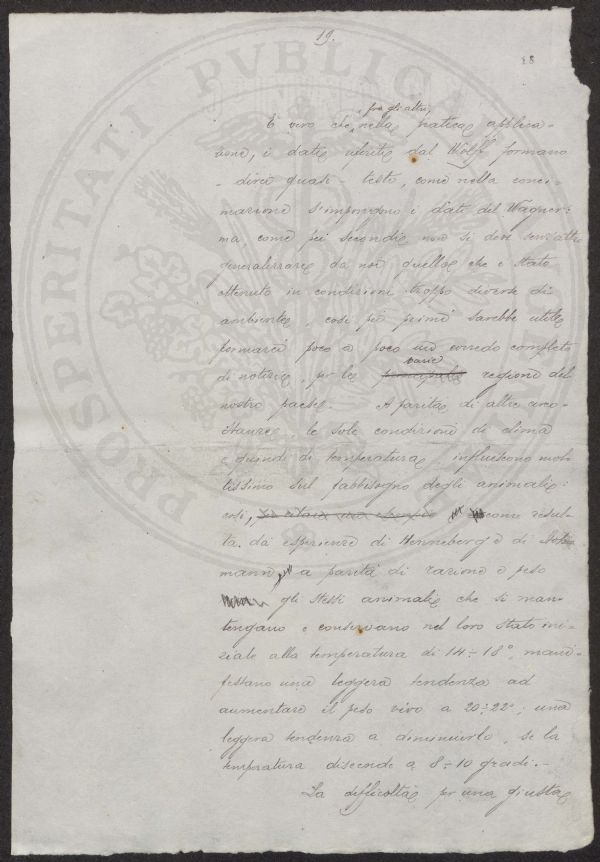 19.
18
fra gli altri,
È vero che, nella pratica applica-
zione, i dati riferiti dal Wolff formano
direi quasi testo, come nella conci-
mazione s'impongono i dati del Wagner:
ma, come pei secondi, non si deve senz'altro
generalizzare da noi quello che è stato
ottenuto in condizioni troppo diverse di
ambiente, così pei primi sarebbe utile
formarci poco a poco un corredo completo
varie
di notizie, per le principali regioni del
nostro paese. A parità di altre circo-
stanze, le sole condizioni di clima
e quindi di temperatura influiscono mol-
tissimo sul fabbisogno degli animali:
così, come risul-
ta da esperienze di Henneberg e di
mann, a parità di razione e peso
gli stessi animali che si man-
tengano e conservano nel loro stato ini-
ziale alla temperatura di 14÷18°, mani-
festano una leggera tendenza ad
aumentare il peso vivo a 20÷22°; una
leggera tendenza a diminuirlo, se la
temperatura discende a 8÷10 gradi.-
La difficoltà per una giusta
PROSPERITATI PVBLICAE